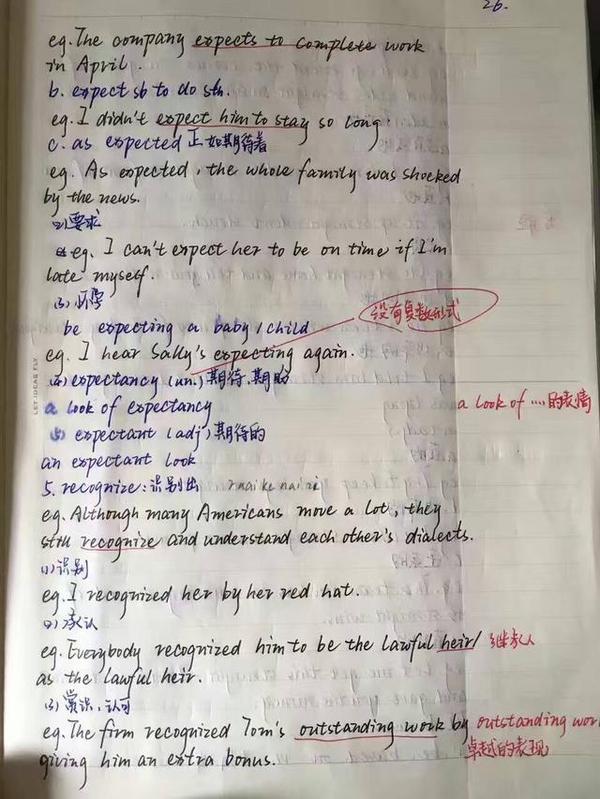 26.
eg. The company expects to complete work
in April.
b. expect sb to do sth.
eg. I didn't expect him to stay so long.
c. as expected 正如期待着
eg. As expected, the whole family was shocked
by the news.
(2) 要求
eg. I can't expect her to be on time if I'm
late myself.
(3) 怀孕
be expecting a baby / child
没有复数形式
eg. I hear Sally's expecting again.
(4) expectancy (un.) 期待、期盼
a look of expectancy
a look of .... 的表情
(5) expectant (adj) 期待的
an expectant look
5. recognize: 识别出
eg. Although many Americans move a lot, they
still recognize and understand each other's dialects.
(1) 识别
eg. I recognized her by her red hat.
(2) 承认
eg. Everybody recognized him to be the lawful heir / 继承人
as the lawful heir.
(3) 赏识、认可
eg. The firm recognized Tom's outstanding work by outstanding wor
giving him an extra bonus. 卓越的表现
LET IDEAS FLY